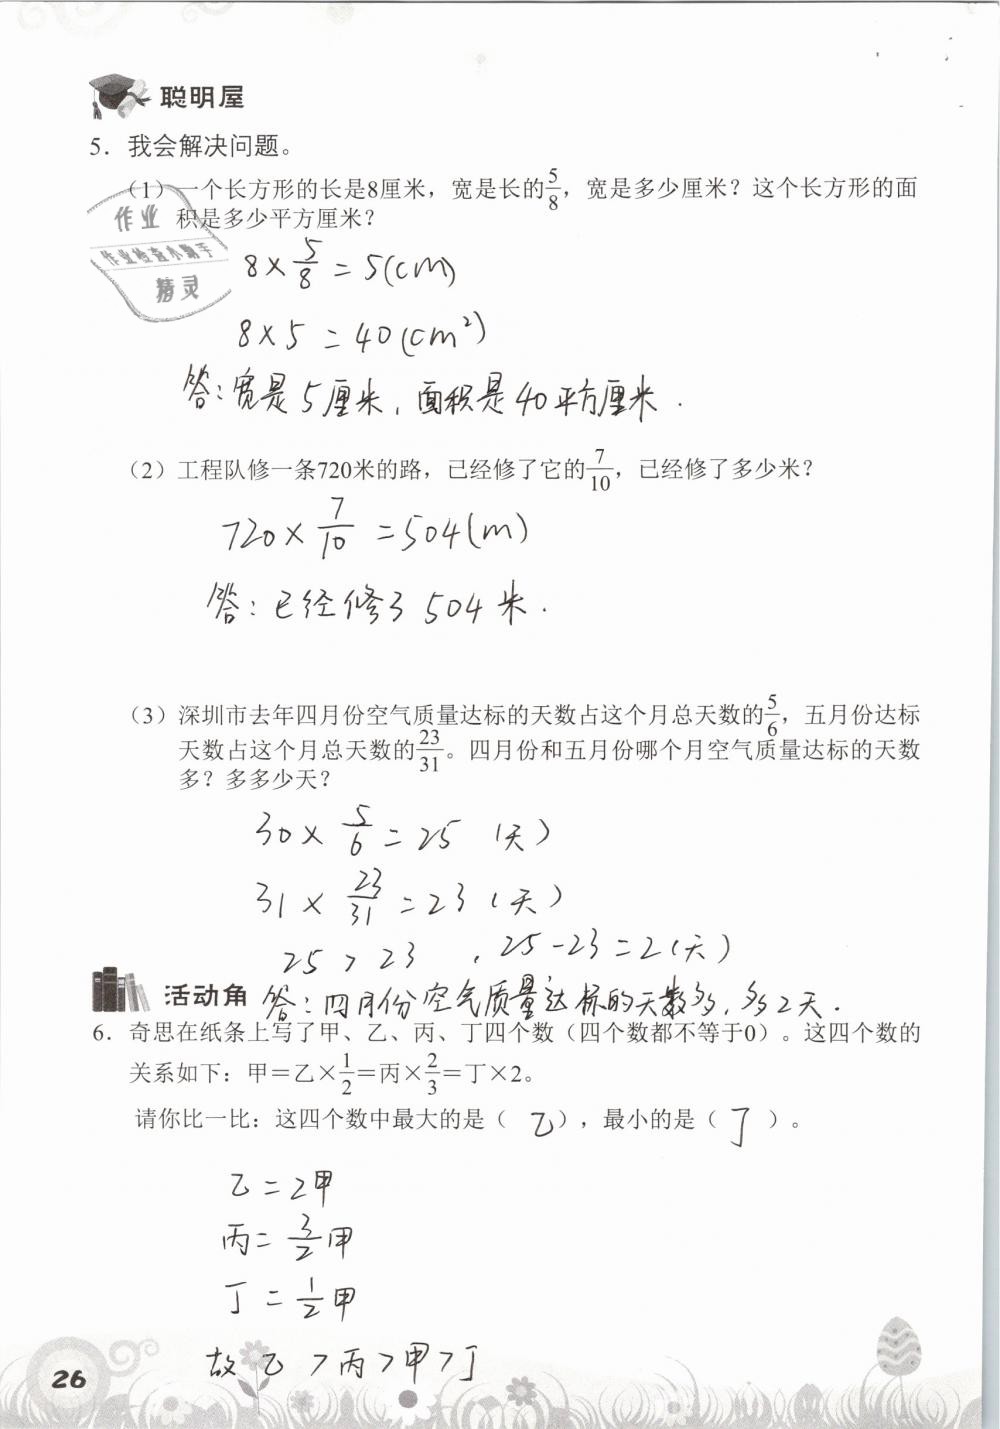 聪明屋
5. 我会解决问题。
（1）一个长方形的长是8厘米，宽是长的5/8，宽是多少厘米？这个长方形的面
积是多少平方厘米？
作业
作业检查小助手
精灵
8×5/8=5(cm)
8×5=40(cm²)
答：宽是5厘米，面积是40平方厘米.
（2）工程队修一条720米的路，已经修了它的7/10，已经修了多少米？
720×7/10=504(m)
答：已经修了504米.
（3）深圳市去年四月份空气质量达标的天数占这个月总天数的5/6，五月份达标
天数占这个月总天数的23/31。四月份和五月份哪个月空气质量达标的天数
多？多多少天？
30×5/6=25（天）
31×23/31=23（天）
25>23，25-23=2(天)
活动角 答：四月份空气质量达标的天数多，多2天.
6. 奇思在纸条上写了甲、乙、丙、丁四个数（四个数都不等于0）。这四个数的
关系如下：甲＝乙×1/2＝丙×2/3＝丁×2。
请你比一比：这四个数中最大的是（乙），最小的是（丁）。
乙=2甲
丙=3/2甲
丁=1/2甲
故乙>丙>甲>丁
26